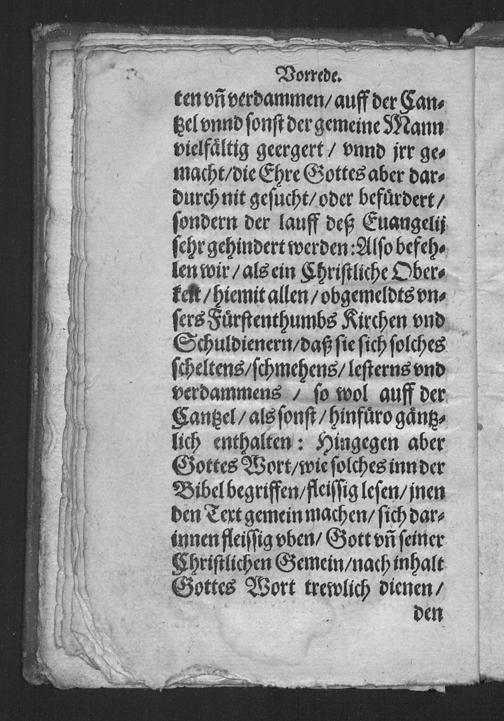 Vorrede.
ten vñ verdammen/ auff der Can⸗
tzel vnnd sonst der gemeine Mann
vielfältig geergert / vnnd jrr ge⸗
macht/die Ehre Gottes aber dar⸗
durch nit gesucht/ oder befürdert/
sondern der lauff deß Euangelij
sehr gehindert werden:Also befeh⸗
len wir/ als ein Christliche Ober⸗
keit/hiemit allen/ obgemeldts vn⸗
sers Fürstenthumbs Kirchen vnd
Schuldienern/daß sie sich solches
scheltens/schmehens/ lesterns vnd
verdammens / so wol auff der
Cantzel/ als sonst/ hinfüro gäntz⸗
lich enthalten: Hingegen aber
Gottes Wort/wie solches inn der
Bibel begriffen/fleissig lesen/jnen
den Text gemein machen/ sich dar⸗
innen fleissig vben/ Gott vñ seiner
Christlichen Gemein/nach inhalt
Gottes Wort trewlich dienen/
den